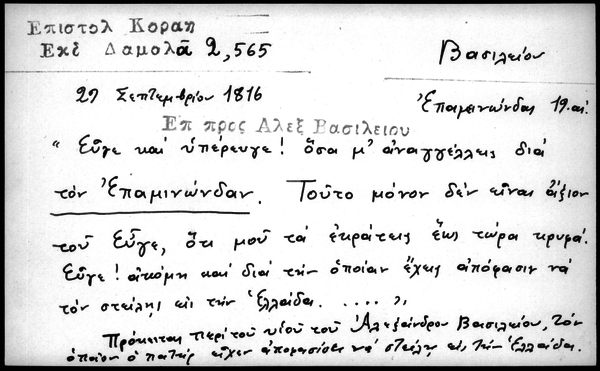 Επιστολ Κοραη
Εκδ Δαμαλᾶ 2,565
Βασιλείου
29 Σεπτεμβρίου 1816
Ἐπαμεινώνδας 19. αἰ.
Επ προς Αλεξ Βασιλειου
“ Εὖγε καὶ ὑπέρευγε! ὅσα μ' ἀναγγέλλεις διὰ
τὸν Ἐπαμινώνδαν. Τοῦτο μόνον δὲν εἶναι ἄξιον
τοῦ Εὖγε, ὅτι μοῦ τὰ ἐκράτεις ἕως τώρα κρυφά.
Εὖγε! ἀκόμη καὶ διὰ τὴν ὁποίαν ἔχεις ἀπόφασιν νὰ
τὸν στείλῃς εἰς τὴν Ἑλλάδα. . . . . . ”,
Πρόκειται περὶ τοῦ υἱοῦ τοῦ Ἀλεξάνδρου Βασιλείου, τὸν
ὁποῖον ὁ πατὴρ εἶχεν ἀποφασίσει νὰ στείλῃ εἰς τὴν Ἑλλάδα.